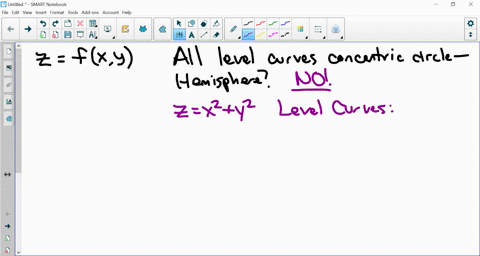 Untitled * - SMART Notebook
File Edit View Insert Format Tools Add-ons Account Help
z = f(x,y) All level curves concentric circle—
Hemisphere? NO!
z = x²+y² Level Curves: